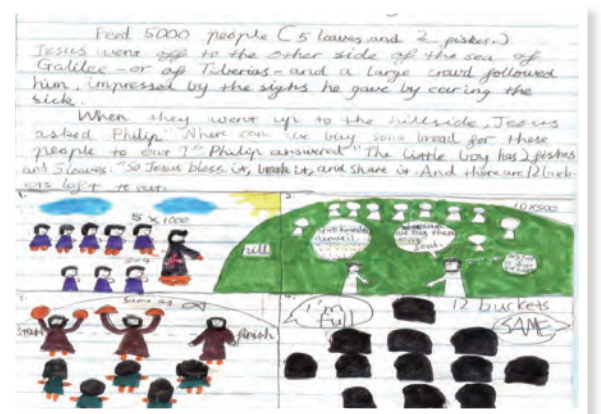 Feed 5000 people (5 loaves and 2 pishes.)
Jesus went off to the other side of the sea of
Galilee - or of Tiberias - and a large crowd followed
him, impressed by the sighs he gave by curing the
sick.
When they went up to the hillside, Jesus
asked Philip "Where can we buy some bread for these
people to eat?" Philip answered "The little boy has 2 pishes
and 5 loaves. "So Jesus bless it, break it, and share it. And there are 12 buck-
ets left to eat.
1.
5 x 1000
2x4
2.
10x500
hill
we buy them
food.
3.
same as
START
finish
I'm
Full
12 buckets
SAME